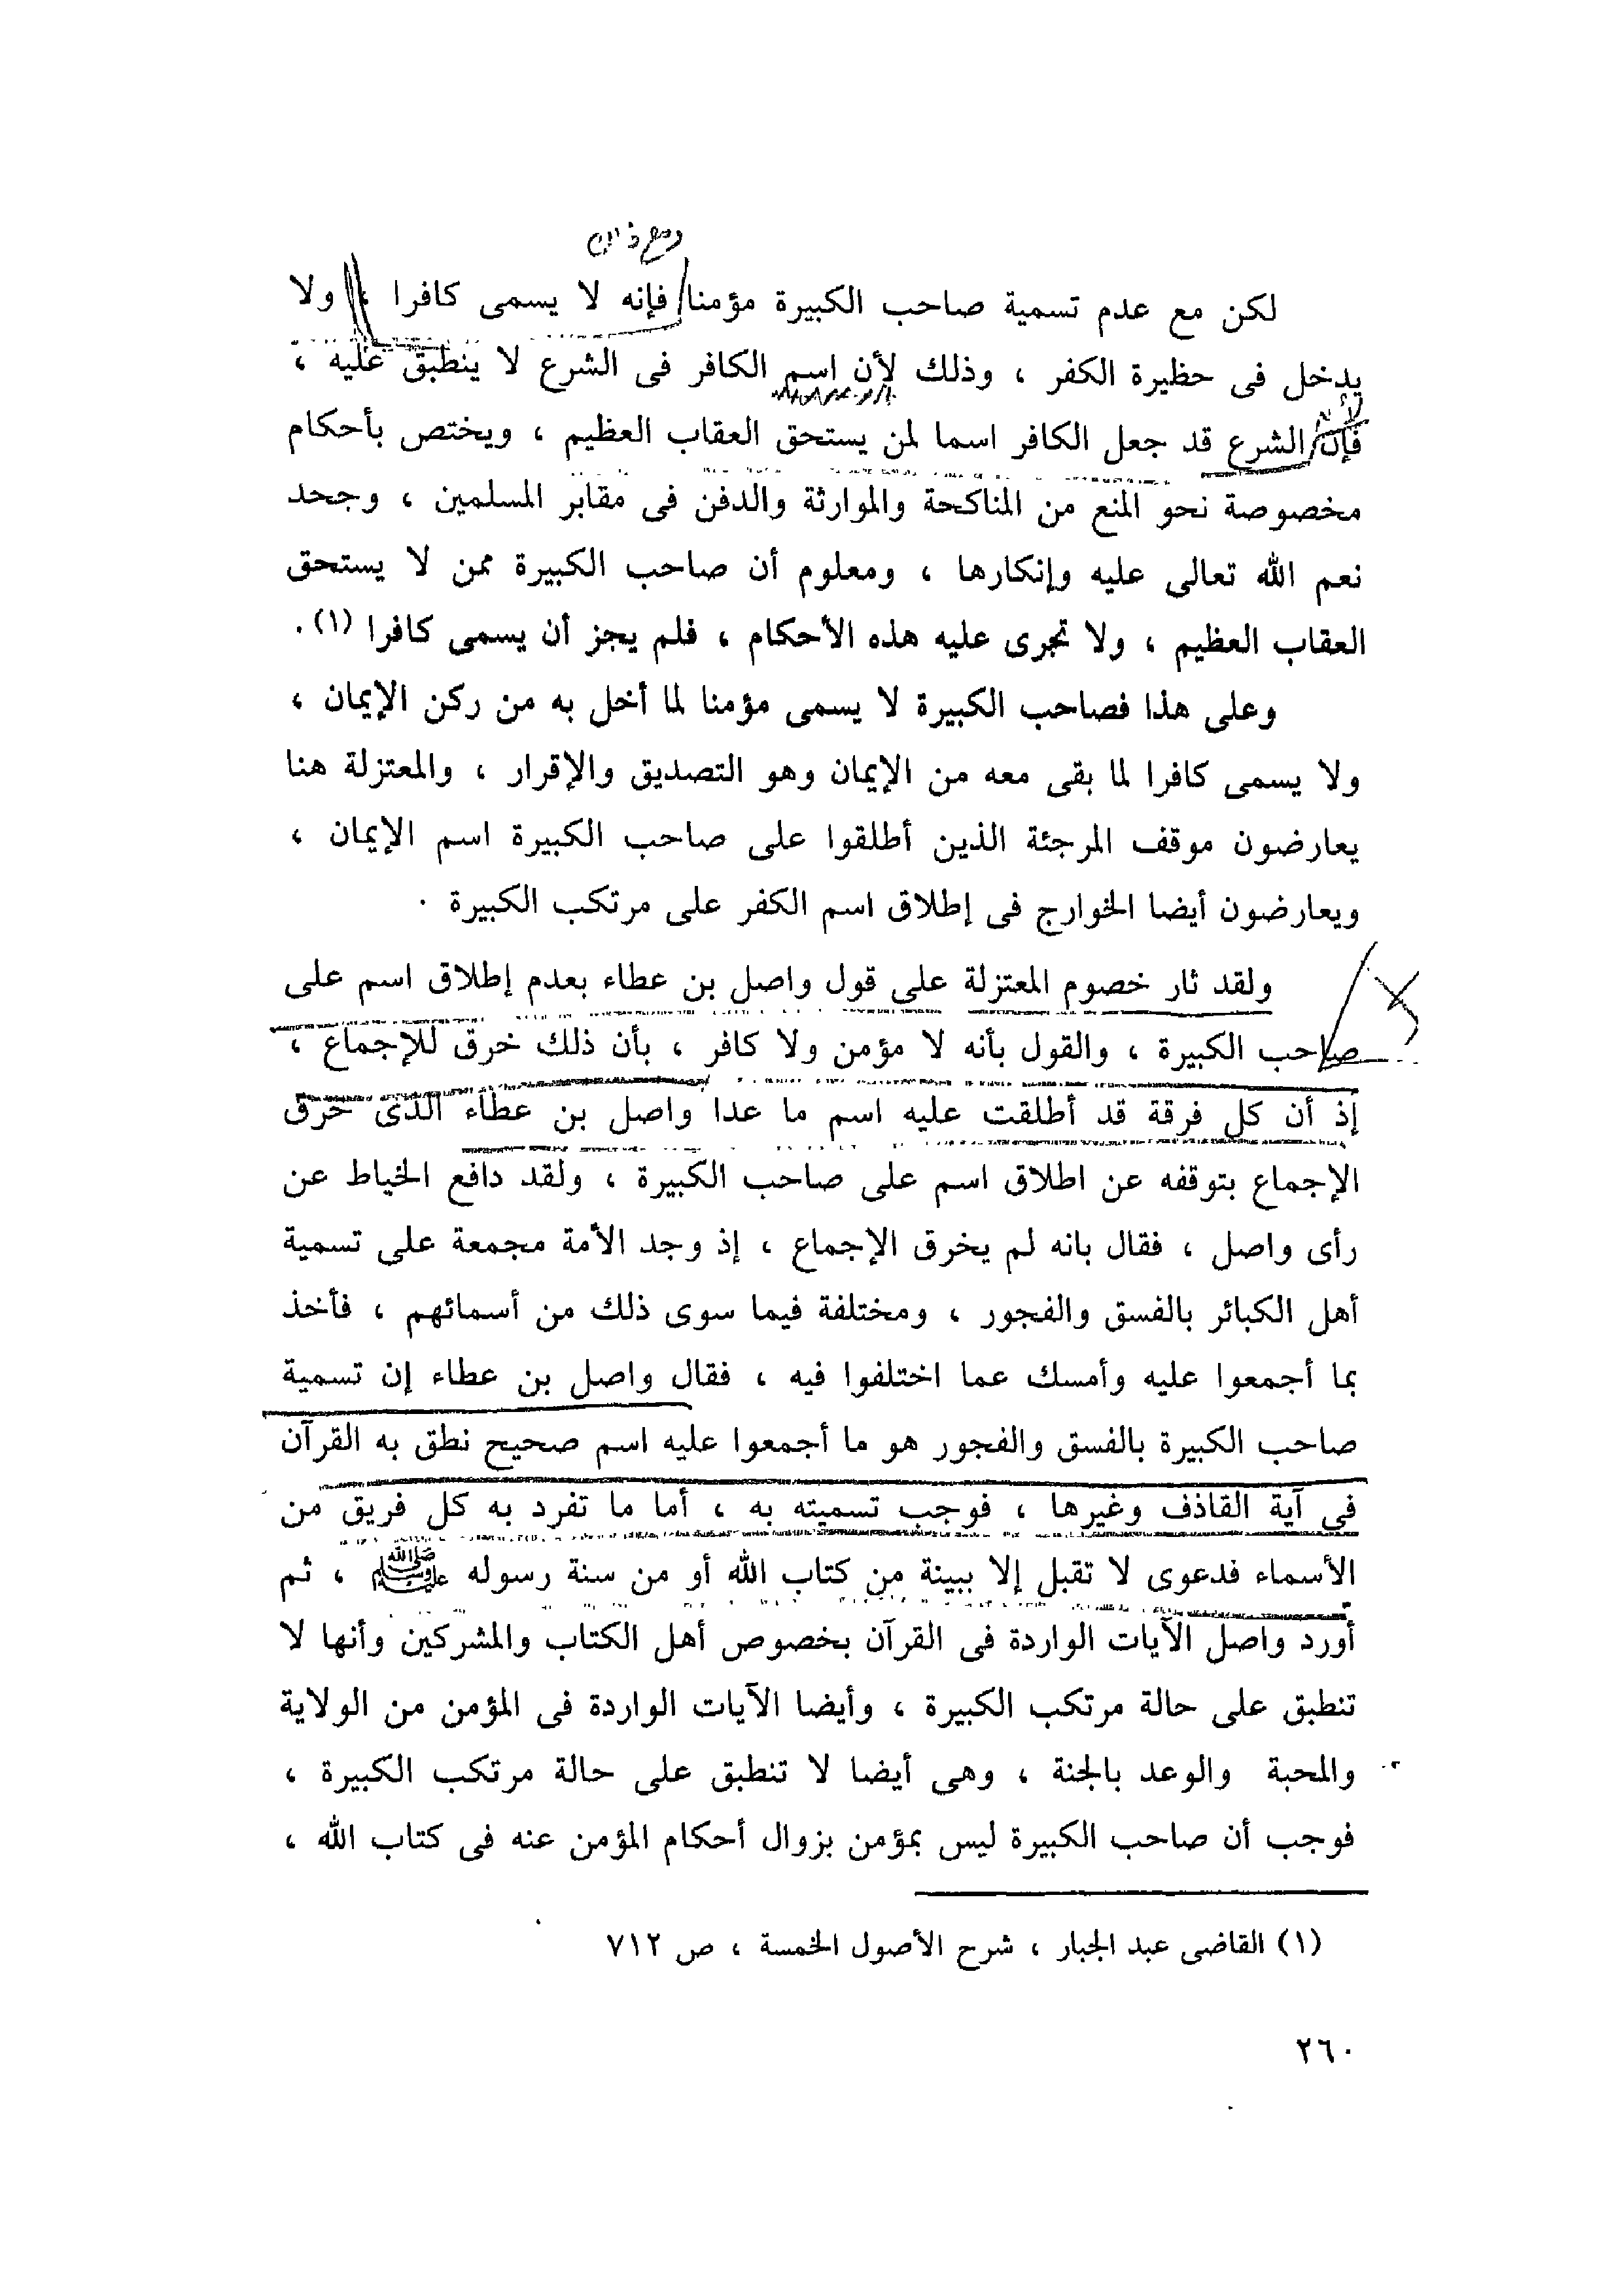 لكن مع عدم تسمية صاحب الكبيرة مؤمنا فإنه لا يسمى كافرا ، ولا
يدخل فى حظيرة الكفر ، وذلك لأن اسم الكافر فى الشرع لا ينطبق عليه ،
فإن الشرع قد جعل الكافر اسما لمن يستحق العقاب العظيم ، ويختص بأحكام
مخصوصة نحو المنع من المناكحة والموارثة والدفن فى مقابر المسلمين ، وجحد
نعم الله تعالى عليه وإنكارها ، ومعلوم أن صاحب الكبيرة ممن لا يستحق
العقاب العظيم ، ولا تجرى عليه هذه الأحكام ، فلم يجز أن يسمى كافرا (١) .
وعلى هذا فصاحب الكبيرة لا يسمى مؤمنا لما أخل به من ركن الإيمان ،
ولا يسمى كافرا لما بقى معه من الإيمان وهو التصديق والإقرار ، والمعتزلة هنا
يعارضون موقف المرجئة الذين أطلقوا على صاحب الكبيرة اسم الإيمان ،
ويعارضون أيضا الخوارج فى إطلاق اسم الكفر على مرتكب الكبيرة .
ولقد ثار خصوم المعتزلة على قول واصل بن عطاء بعدم إطلاق اسم على
صاحب الكبيرة ، والقول بأنه لا مؤمن ولا كافر ، بأن ذلك خرق للإجماع ،
إذ أن كل فرقة قد أطلقت عليه اسم ما عدا واصل بن عطاء الذى خرق
الإجماع بتوقفه عن اطلاق اسم على صاحب الكبيرة ، ولقد دافع الخياط عن
رأى واصل ، فقال بانه لم يخرق الإجماع ، إذ وجد الأمة مجمعة على تسمية
أهل الكبائر بالفسق والفجور ، ومختلفة فيما سوى ذلك من أسمائهم ، فأخذ
بما أجمعوا عليه وأمسك عما اختلفوا فيه ، فقال واصل بن عطاء إن تسمية
صاحب الكبيرة بالفسق والفجور هو ما أجمعوا عليه اسم صحيح نطق به القرآن
فى آية القاذف وغيرها ، فوجب تسميته به ، أما ما تفرد به كل فريق من
الأسماء فدعوى لا تقبل إلا ببينة من كتاب الله أو من سنة رسوله ﷺ ، ثم
أورد واصل الآيات الواردة فى القرآن بخصوص أهل الكتاب والمشركين وأنها لا
تنطبق على حالة مرتكب الكبيرة ، وأيضا الآيات الواردة فى المؤمن من الولاية
والمحبة والوعد بالجنة ، وهى أيضا لا تنطبق على حالة مرتكب الكبيرة ،
فوجب أن صاحب الكبيرة ليس بمؤمن بزوال أحكام المؤمن عنه فى كتاب الله ،
(١) القاضى عبد الجبار ، شرح الأصول الخمسة ، ص ٧١٢
٢٦٠